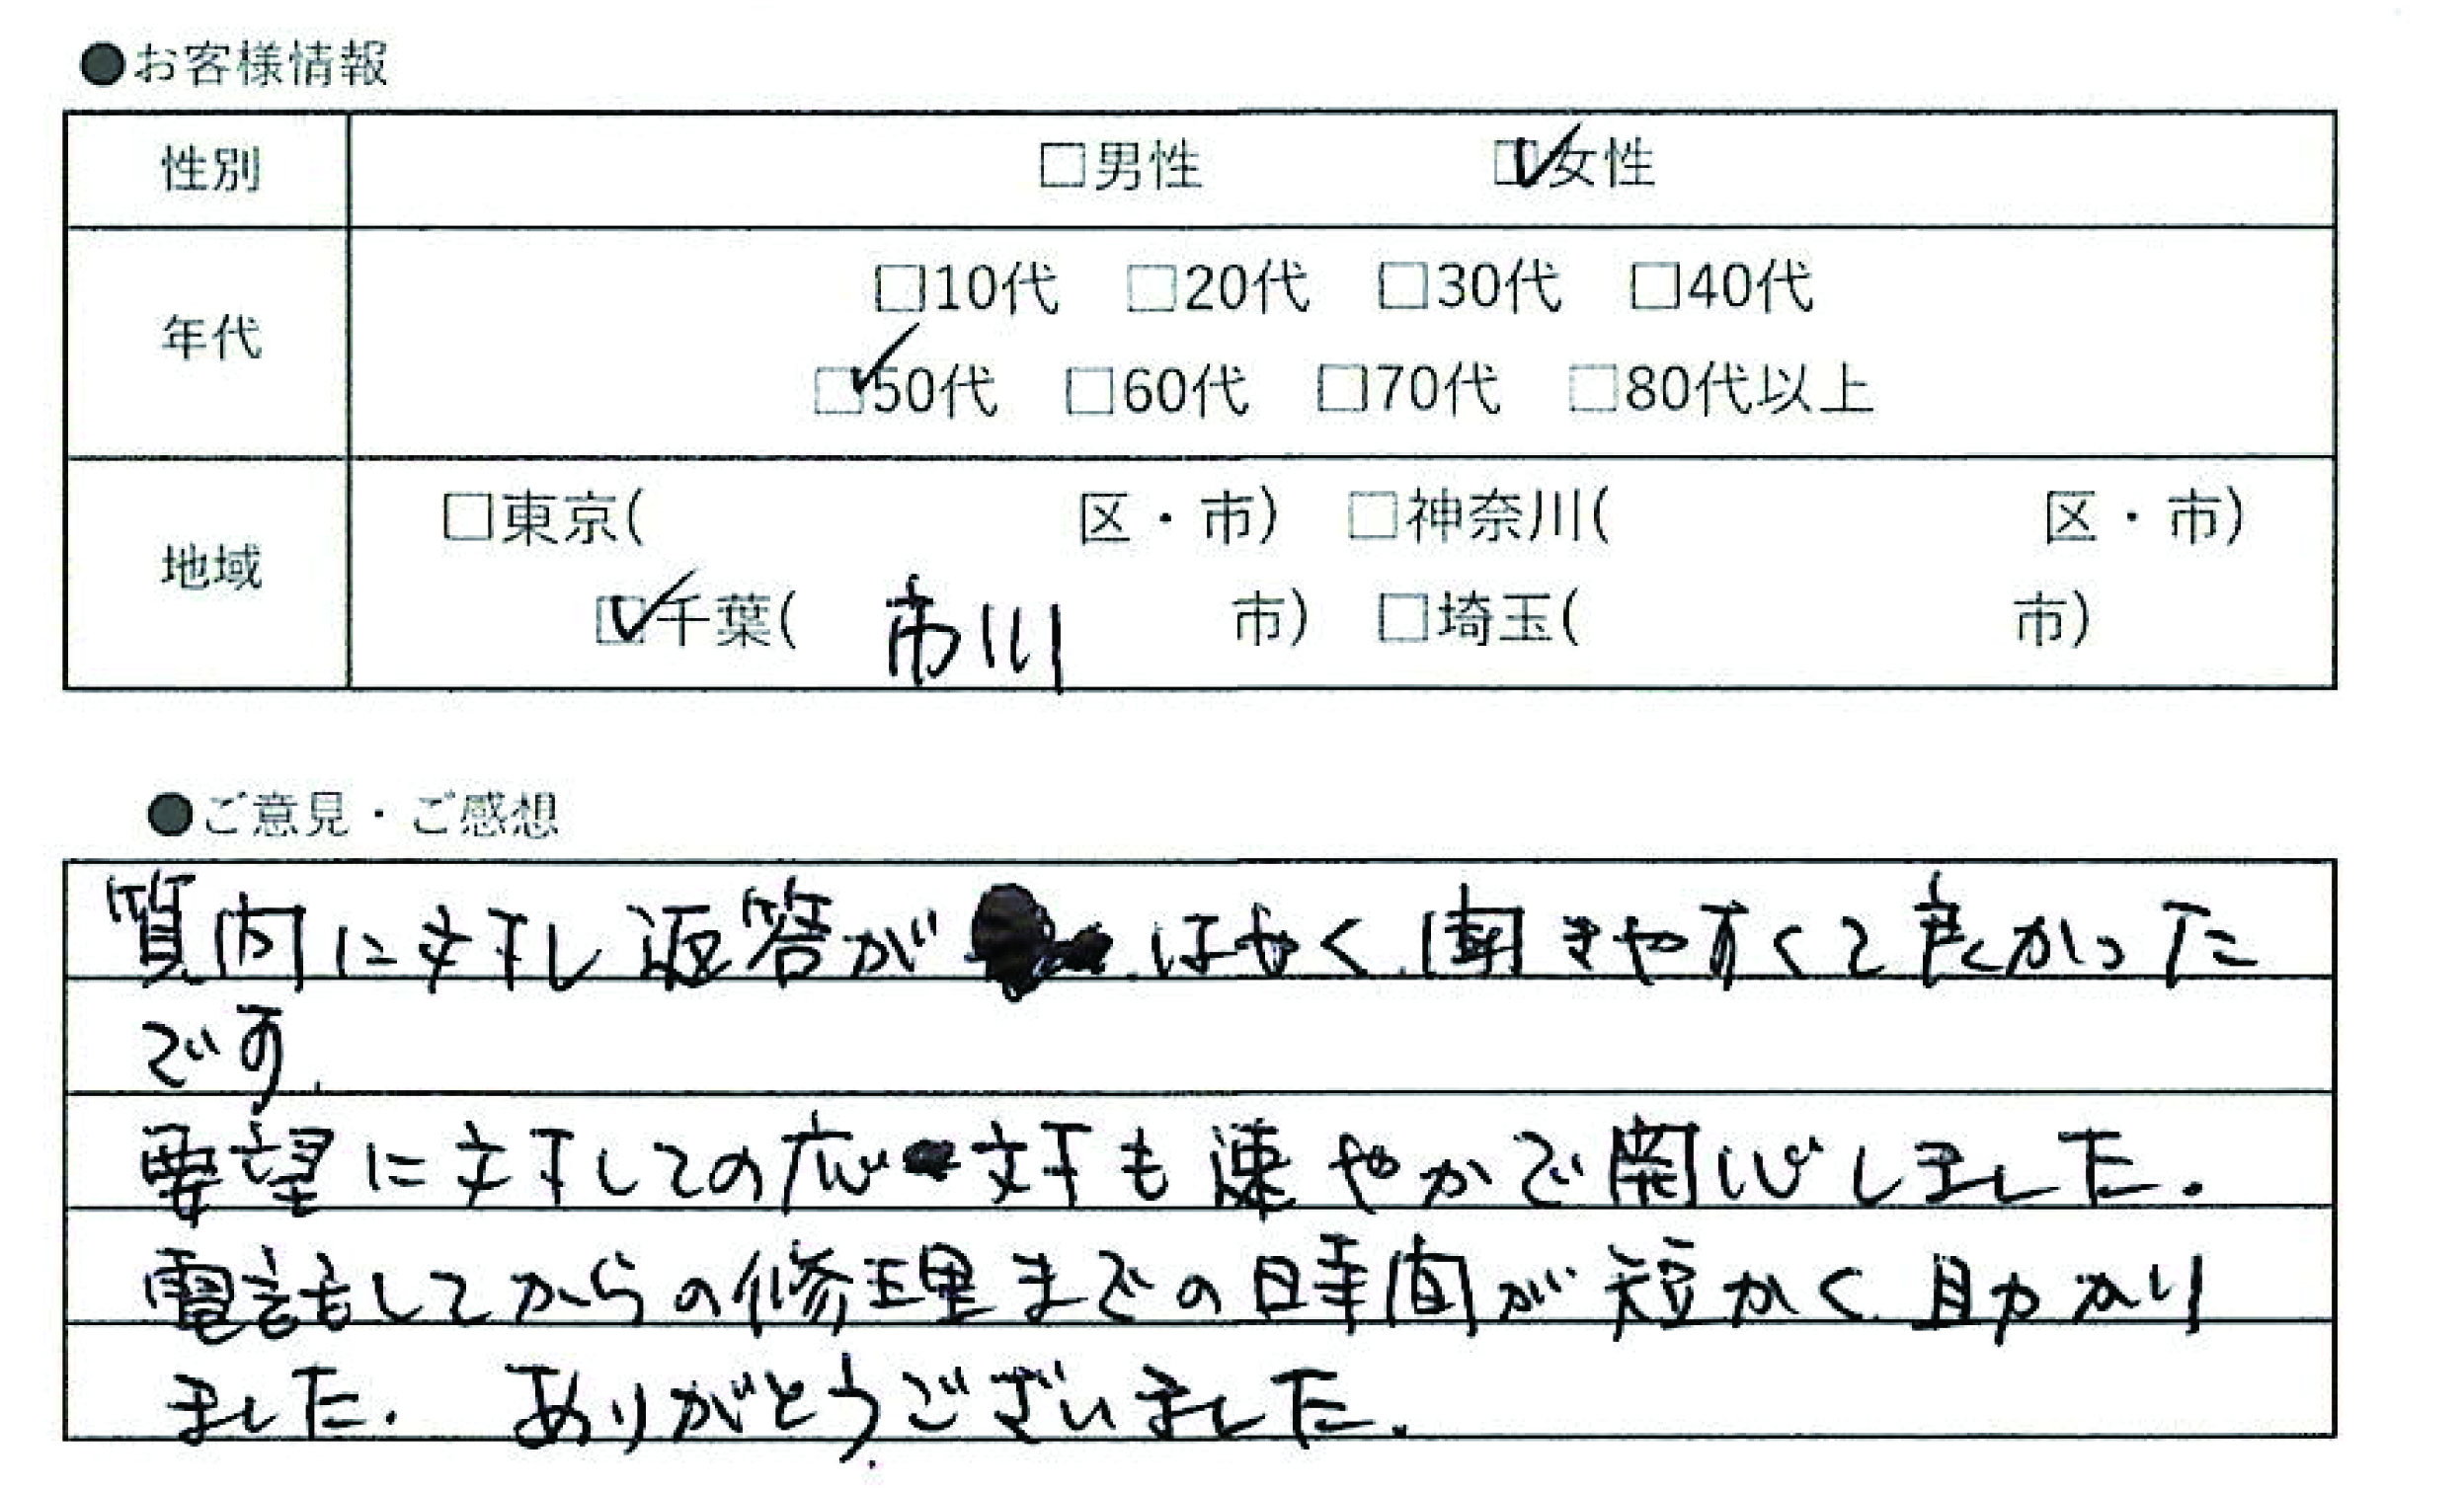 ●お客様情報
性別 □男性 ☑女性
年代 □10代 □20代 □30代 □40代
☑50代 □60代 □70代 □80代以上
地域 □東京( 区・市) □神奈川( 区・市)
☑千葉( 市川 市) □埼玉( 市)
●ご意見・ご感想
質問に対し返答がはやく、聞きやすくて良かった
です、
要望に対しての応対も速やかで関心しました。
電話してからの修理までの時間が短かく、助かり
ました。ありがとうございました。